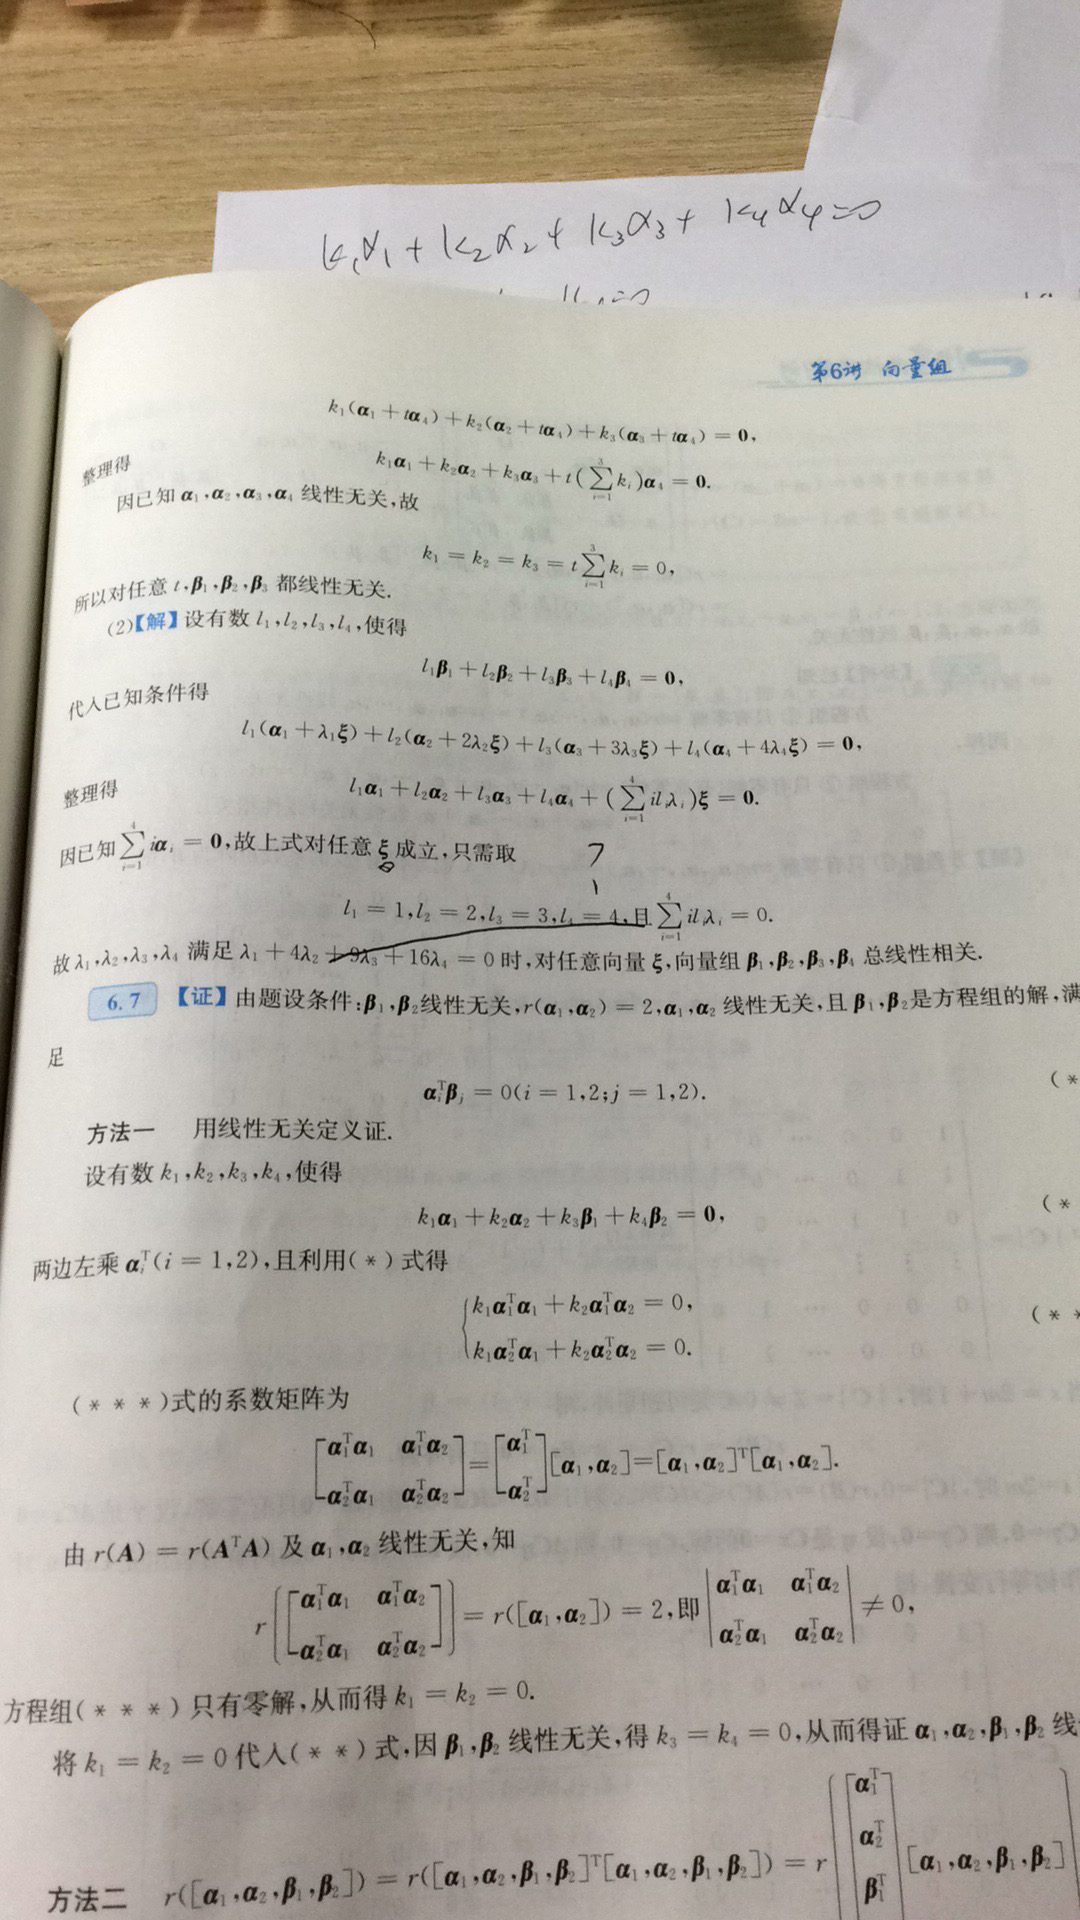 k₁α₁ + k₂α₂ + k₃α₃ + k₄α₄ = 0
第6讲 向量组
k₁(α₁ + tα₄) + k₂(α₂ + tα₄) + k₃(α₃ + tα₄) = 0,
整理得 k₁α₁ + k₂α₂ + k₃α₃ + t(∑_{i=1}^{3} kᵢ)α₄ = 0.
因已知 α₁,α₂,α₃,α₄ 线性无关,故
k₁ = k₂ = k₃ = t∑_{i=1}^{3} kᵢ = 0,
所以对任意 t,β₁,β₂,β₃ 都线性无关.
(2)【解】设有数 l₁,l₂,l₃,l₄,使得
l₁β₁ + l₂β₂ + l₃β₃ + l₄β₄ = 0,
代入已知条件得
l₁(α₁ + λ₁ξ) + l₂(α₂ + 2λ₂ξ) + l₃(α₃ + 3λ₃ξ) + l₄(α₄ + 4λ₄ξ) = 0,
整理得 l₁α₁ + l₂α₂ + l₃α₃ + l₄α₄ + (∑_{i=1}^{4} ilᵢλᵢ)ξ = 0.
因已知∑_{i=1}^{4} iαᵢ = 0,故上式对任意 ξ 成立,只需取 ?
l₁ = 1,l₂ = 2,l₃ = 3,l₄ = 4,且∑_{i=1}^{4} ilᵢλᵢ = 0.
故 λ₁,λ₂,λ₃,λ₄ 满足 λ₁ + 4λ₂ + 9λ₃ + 16λ₄ = 0 时,对任意向量 ξ,向量组 β₁,β₂,β₃,β₄ 总线性相关.
6.7 【证】由题设条件:β₁,β₂线性无关,r(α₁,α₂) = 2,α₁,α₂ 线性无关,且 β₁,β₂是方程组的解,满
足
αᵢᵀβⱼ = 0(i = 1,2;j = 1,2). (*
方法一 用线性无关定义证.
设有数 k₁,k₂,k₃,k₄,使得
k₁α₁ + k₂α₂ + k₃β₁ + k₄β₂ = 0, (*
两边左乘 αᵢᵀ(i = 1,2),且利用(*)式得
k₁α₁ᵀα₁ + k₂α₁ᵀα₂ = 0, (* *
k₁α₂ᵀα₁ + k₂α₂ᵀα₂ = 0.
(* * *)式的系数矩阵为
[α₁ᵀα₁ α₁ᵀα₂; α₂ᵀα₁ α₂ᵀα₂] = [α₁ᵀ; α₂ᵀ][α₁,α₂] = [α₁,α₂]ᵀ[α₁,α₂].
由 r(A) = r(AᵀA) 及 α₁,α₂ 线性无关,知
r([α₁ᵀα₁ α₁ᵀα₂; α₂ᵀα₁ α₂ᵀα₂]) = r([α₁,α₂]) = 2,即 |α₁ᵀα₁ α₁ᵀα₂; α₂ᵀα₁ α₂ᵀα₂| ≠ 0,
方程组(* * *)只有零解,从而得 k₁ = k₂ = 0.
将 k₁ = k₂ = 0 代入(* *)式,因 β₁,β₂ 线性无关,得 k₃ = k₄ = 0,从而得证 α₁,α₂,β₁,β₂ 线
方法二 r([α₁,α₂,β₁,β₂]) = r([α₁,α₂,β₁,β₂]ᵀ[α₁,α₂,β₁,β₂]) = r([α₁ᵀ; α₂ᵀ; β₁ᵀ [α₁,α₂,β₁,β₂]